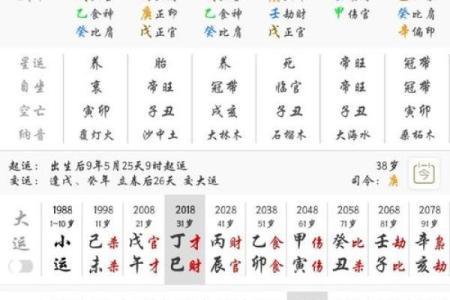 乙食神 庚正印 乙食神 壬劫财 甲伤官 乙食神
癸比肩 戊正官 癸比肩 戊正官 辛偏印
星运 养 胎 养 死 帝旺 冠带
自坐 衰 帝旺 冠带 临官 帝旺 冠带
空亡 寅卯 子丑 戌亥 子丑 子丑 寅卯
纳音 覆灯火 沙中土 大林木 石榴木 大海水 桑柘木
起运：出生后9年5月25天9时起运 38岁
交运：逢戊、癸年 立春后26天 交大运 司令：庚 今
大 1988 1998 2008 2018 2028 2038 2048 2058 2068 2078
1~10岁 11岁 21岁 31岁 41岁 51岁 61岁 71岁 81岁 91岁
运 小 己杀 戊官 丁才 丙财 乙食 甲伤 癸比 壬劫 辛枭
运 未杀 午才 巳财 辰官 卯食 寅伤 丑杀 子劫 亥劫